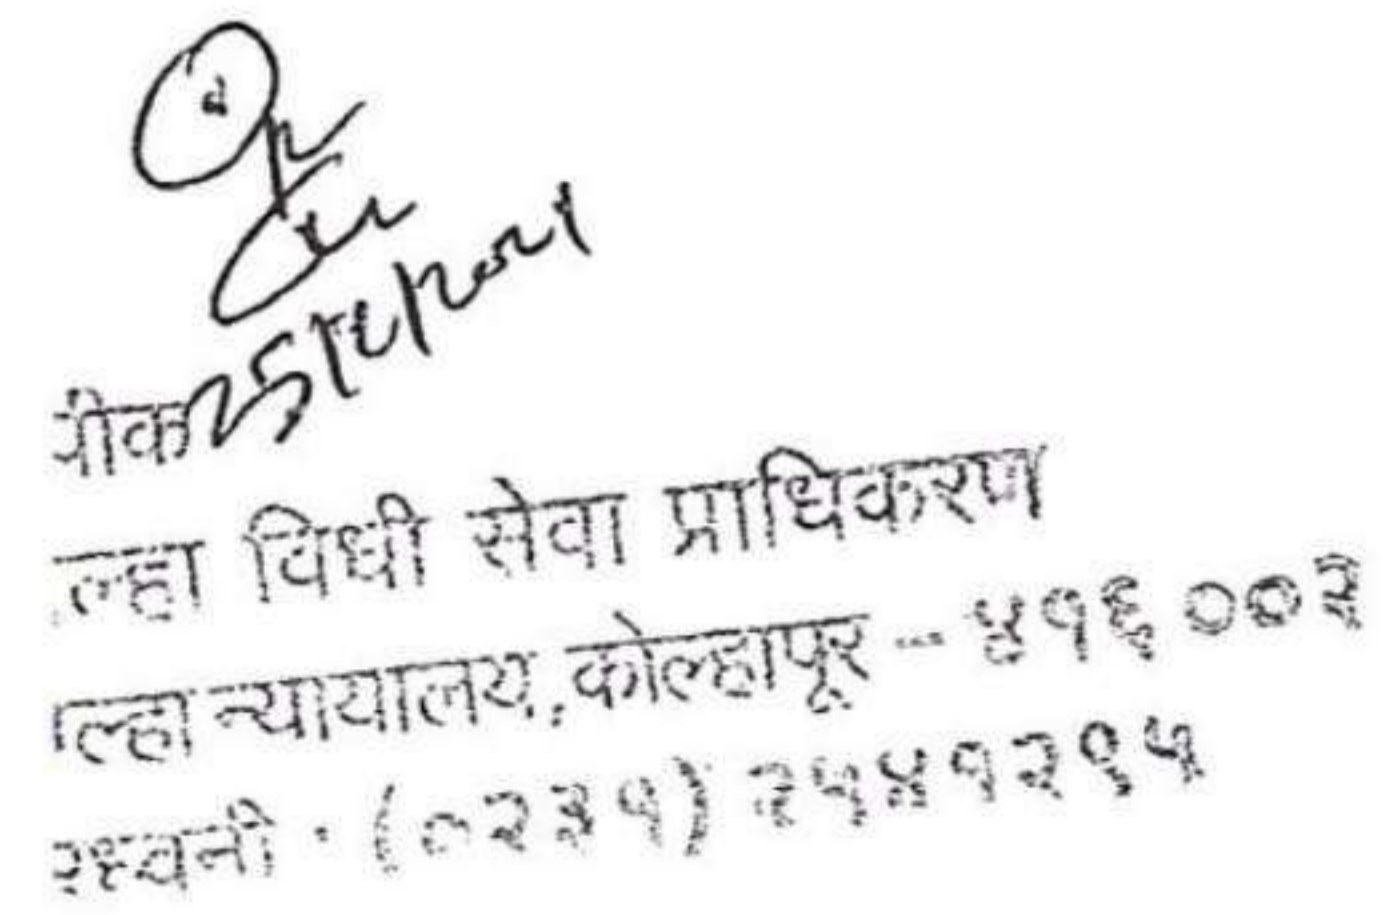 रीक
ल्हा विधी सेवा प्राधिकरण
ल्हा न्यायालय, कोल्हापूर -- ४१६ ००३
रध्वनी : (०२३१) २५४१२९५